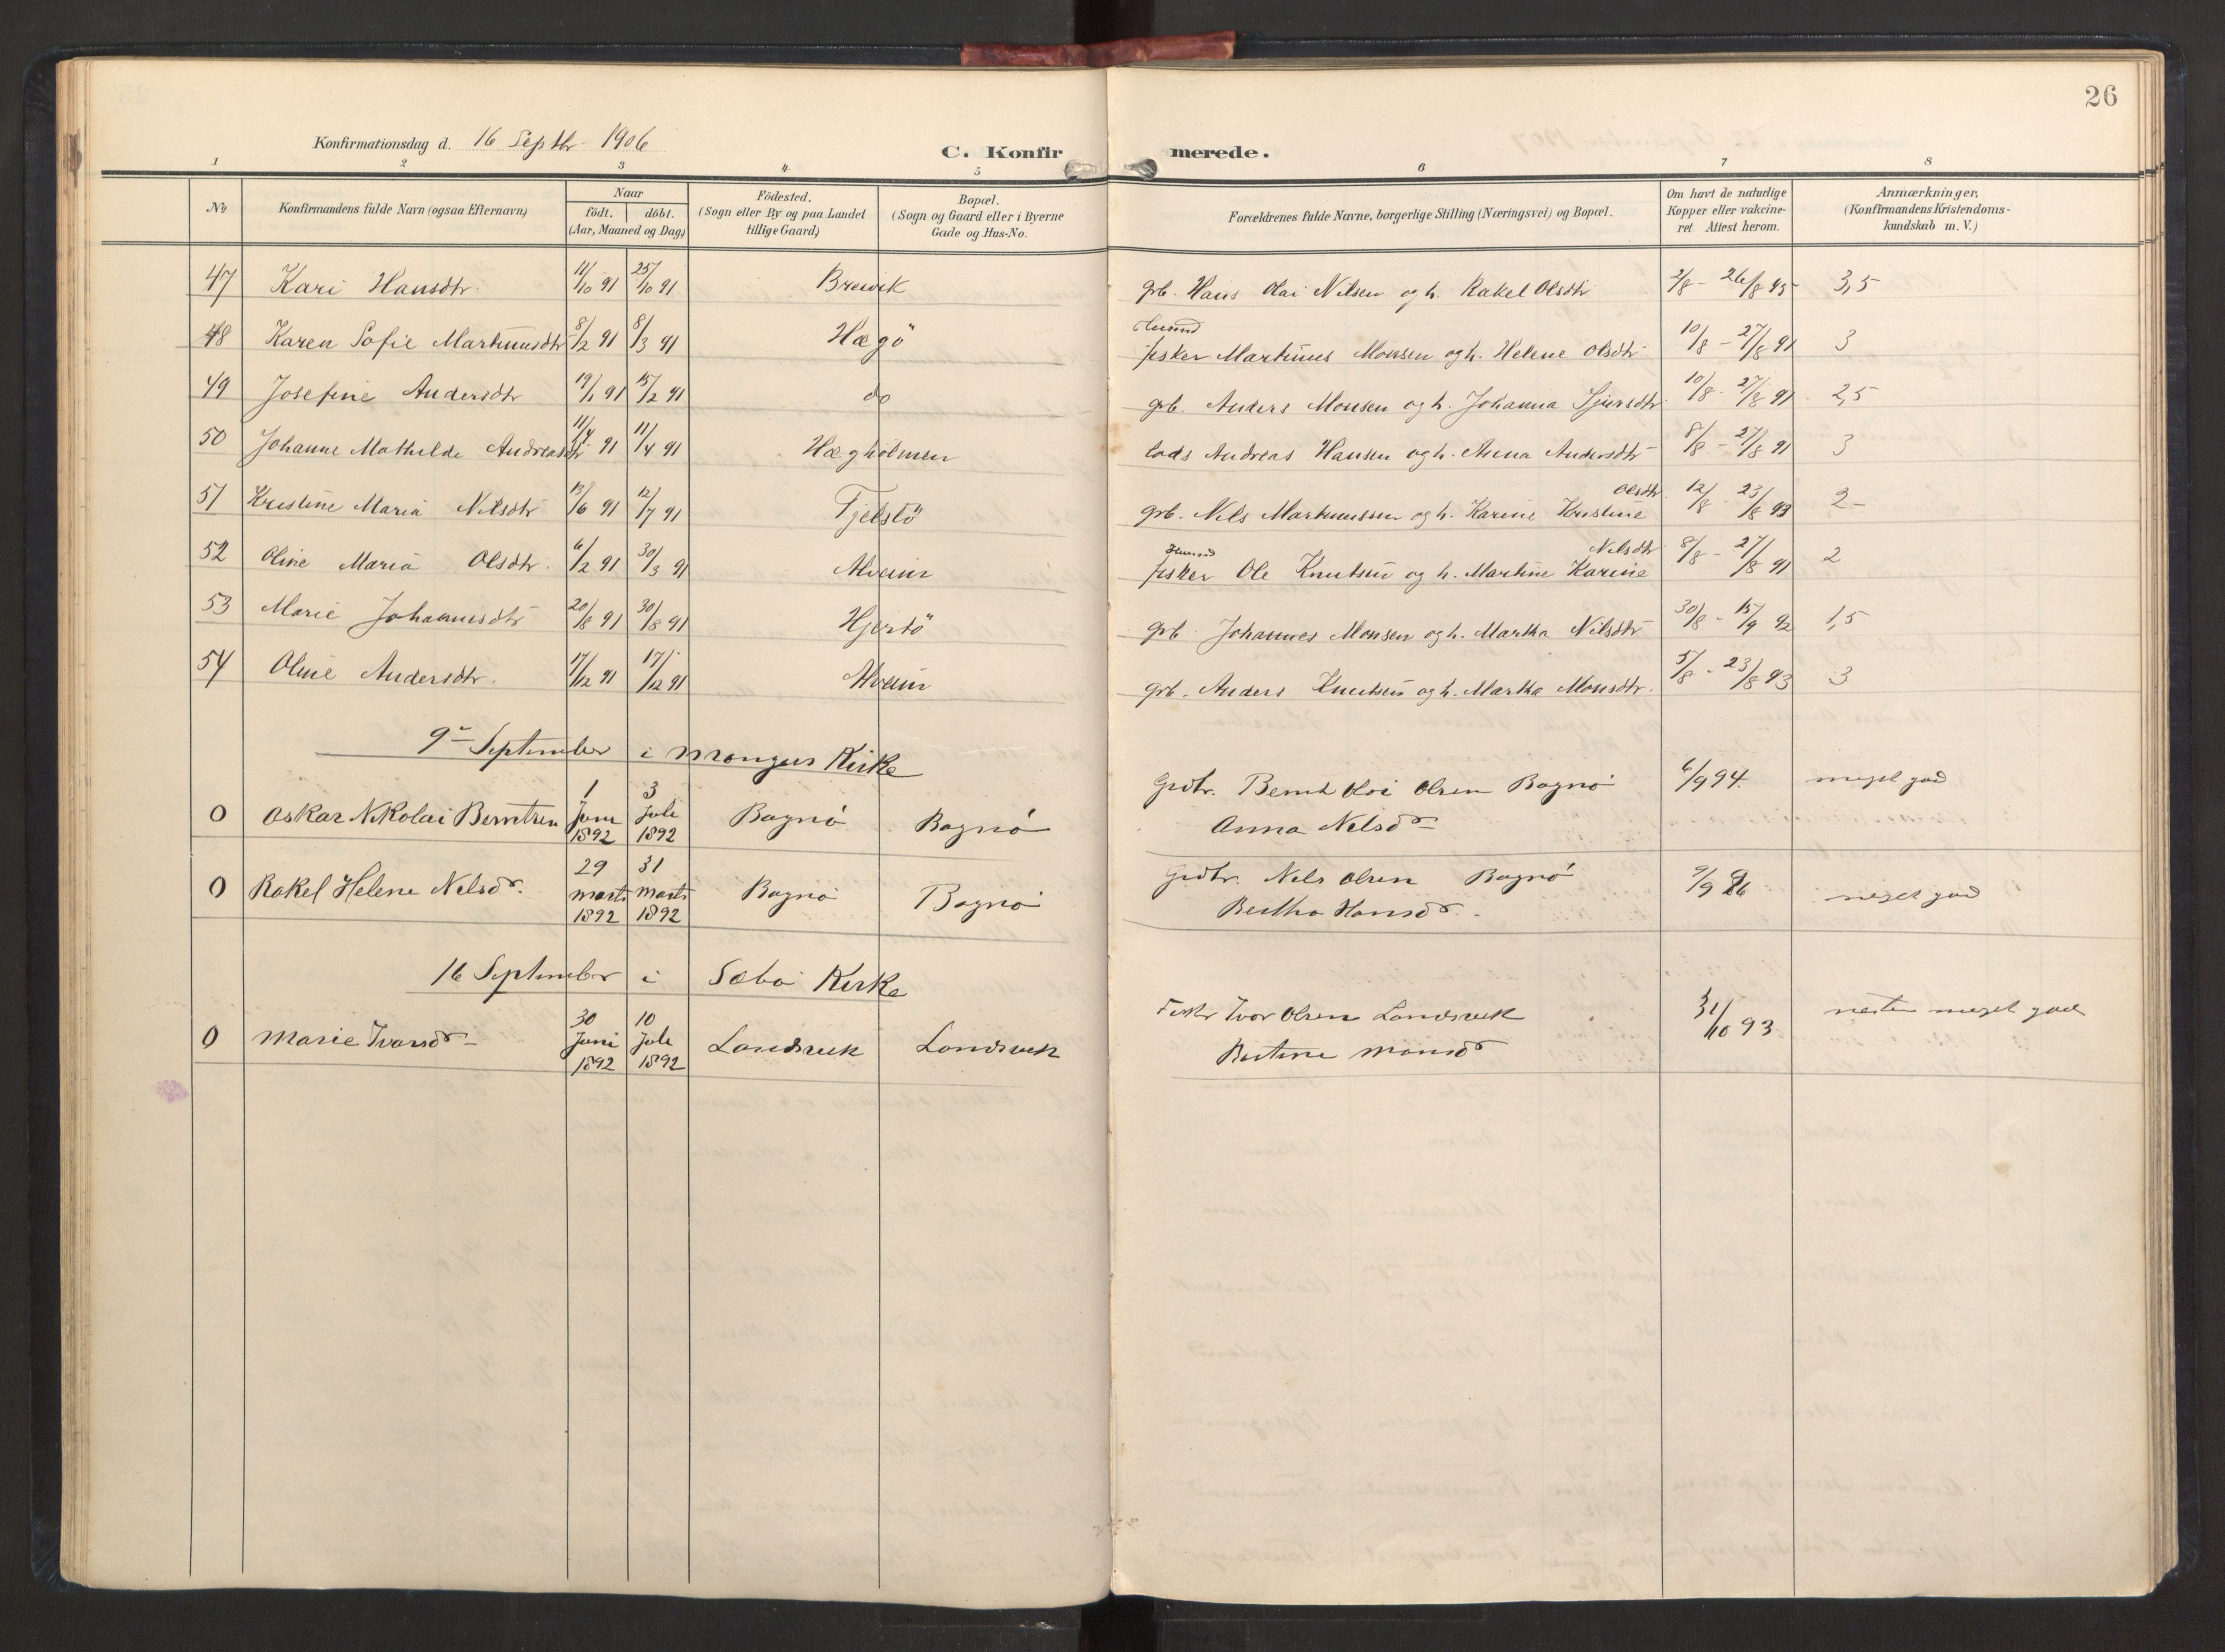 26
Konfirmationsdag d. 16 Septbr 1906
C. Konfirmerede.
1 2 3 4 5 6 7 8
No
Konfirmandens fulde Navn (ogsaa Efternavn)
Naar
födt. döbt.
(Aar, Maaned og Dag)
Födested.
(Sogn eller By og paa Landet
tillige Gaard)
Bopæl.
(Sogn og Gaard eller i Byerne
Gade og Hus-No.
Forældrenes fulde Navne, borgerlige Stilling (Næringsvei) og Bopæl.
Om havt de naturlige
Kopper eller vakcine-
ret. Attest herom.
Anmærkninger,
(Konfirmandens Kristendoms-
kundskab m. V.)
47 Kari Hansdtr. 11/10 91 25/10 91 Brewik grb. Hans Olai Nilsen og h. Rakel Olsdtr 2/8 - 26/8 95 3,5
48 Karen Sofie Martinusdtr 8/2 91 8/3 91 Hægö fisker Martinus Monsen og h. Helene Olsdtr 10/8 - 27/8 91 3
49 Josefine Andersdtr 19/1 91 15/2 91 do grb. Anders Monsen og h. Johanna Sjursdtr 10/8 - 27/8 91 2,5
50 Johanne Mathilde Andreasdtr 91 11/4 91 Hægholmen lods Andreas Hansen og h. Anna Andersdtr 8/8 - 27/8 91 3
Olsdtr
51 Kristine Maria Nilsdtr 13/6 91 12/7 91 Fjelstö grb. Nils Martinussen og h. Karine Kristine 12/8 - 23/8 93 2-
Nilsdtr
52 Oline Maria Olsdtr. 6/2 91 30/3 91 Alveim fisker Ole Knutsen og h. Martine Karine 8/8 - 27/8 91 2
53 Marie Johannesdtr 20/8 91 30/8 91 Hjertö grb. Johannes Monsen og h. Martha Nilsdtr 30/8 - 15/9 92 1,5
54 Oline Andersdtr. 17/12 91 17/12 91 Alveim grb. Anders Knutsen og h. Martha Monsdtr. 5/8 - 23/8 93 3
9 September i Mangers Kirke
0 Oskar Nikolai Berntsen 1 Juni 1892 3 Juli 1892 Bognø Bognø Grdbr. Bernt Olai Olsen Bognø 6/9 94. meget god
Anna Nelsdr
0 Rakel Helene Nelsdr. 29 Marts 1892 31 Marts 1892 Bognø Bognø Grdbr. Nels Olsen Bognø meget god
Bertha Hansdr.
16 September i Sæbø Kirke
0 Marie Ivarsdr 30 Juni 1892 10 Juli 1892 Landsvik Landsvik Fisker Ivar Olsen Landsvik 31/10 93 nesten meget god
Bertine Monsdr